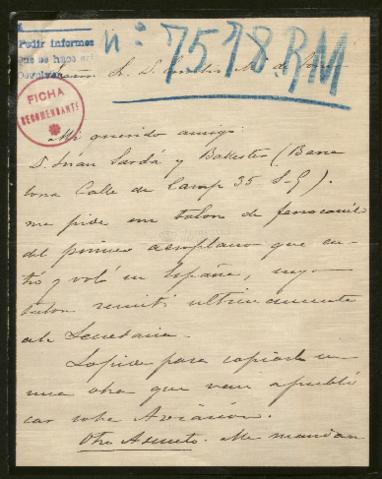 Pedir informes
que se haga
Devolver
n.º 7518 RM
FICHA
RECOMENDANTE
Sr. D. Emilio M. de
Mi querido amigo:
D. Juan Sardá y Ballester (Barce
lona Calle de Camp 35 S-G).
me pide un talon de ferrocarril
del primer aeroplano que en-
tró y voló en España, cuyo
talon remití ultimamente
a la Secretaria.
Lo pide para copiarlo en
una obra que van a publi
car sobre Aviación.
Otro Asunto. Me mandan